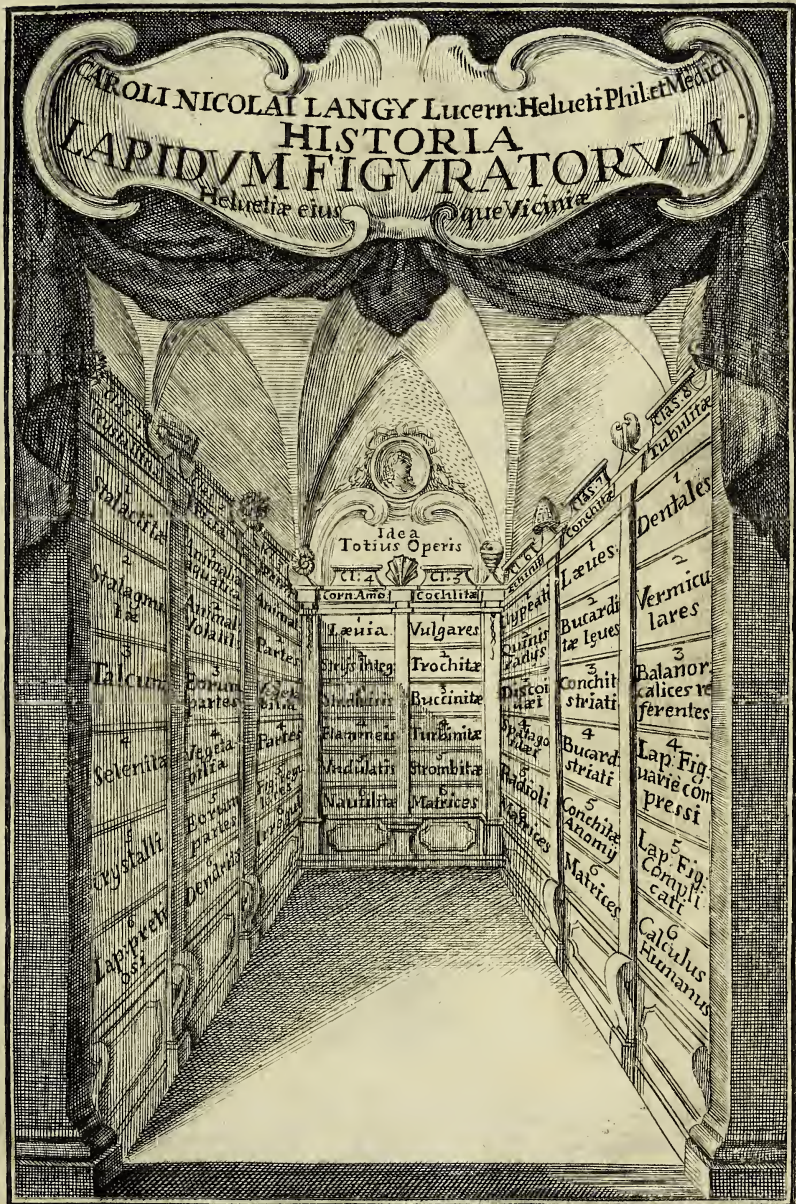 CAROLI NICOLAI LANGY Lucern: Helueti Phil: et Medici
HISTORIA
LAPIDVM FIGVRATORVM
Heluetiæ eius que Viciniæ
Idea
Totius Operis
Clas. 1
1
Stalactitæ
2
Stalagmi
tæ
3
Talcum
4
Selenitæ
5
Crystalli
6
Lap: preti
osi
1
Animalia
aquatica
2
Animal:
Volatil:
3
Eorum
partes
4
Vegeta
bilia
5
Eorum
partes
6
Dendritis
Animal
2
Partes
4
Partes
Cl: 4
Corn Amo:
1
Læuia
2
Strijs integ:
Flammeis
Vndulatis
Nautilitæ
Cl: 5
Cochlitæ
1
Vulgares
2
Trochitæ
3
Buccinitæ
4
Turbinitæ
5
Strombitæ
6
Matrices
Cl: 6
Clypeati
2
Quinis
radijs
3
Discoi
dæi
4
Spatago
idæi
5
Radioli
6
Matrices
Clas. 7
Conchitæ
1
Læues
2
Bucardi
tæ leues
3
Conchit:
striati
4
Bucard:
striati
5
Conchitæ
Anomij
6
Matrices
Clas. 8
Tubulitæ
1
Dentales
2
Vermicu
lares
3
Balanor:
calices re
ferentes
4
Lap: Fig:
uariè com
pressi
5
Lap: Fig:
Compli
cati
6
Calculus
Humanus